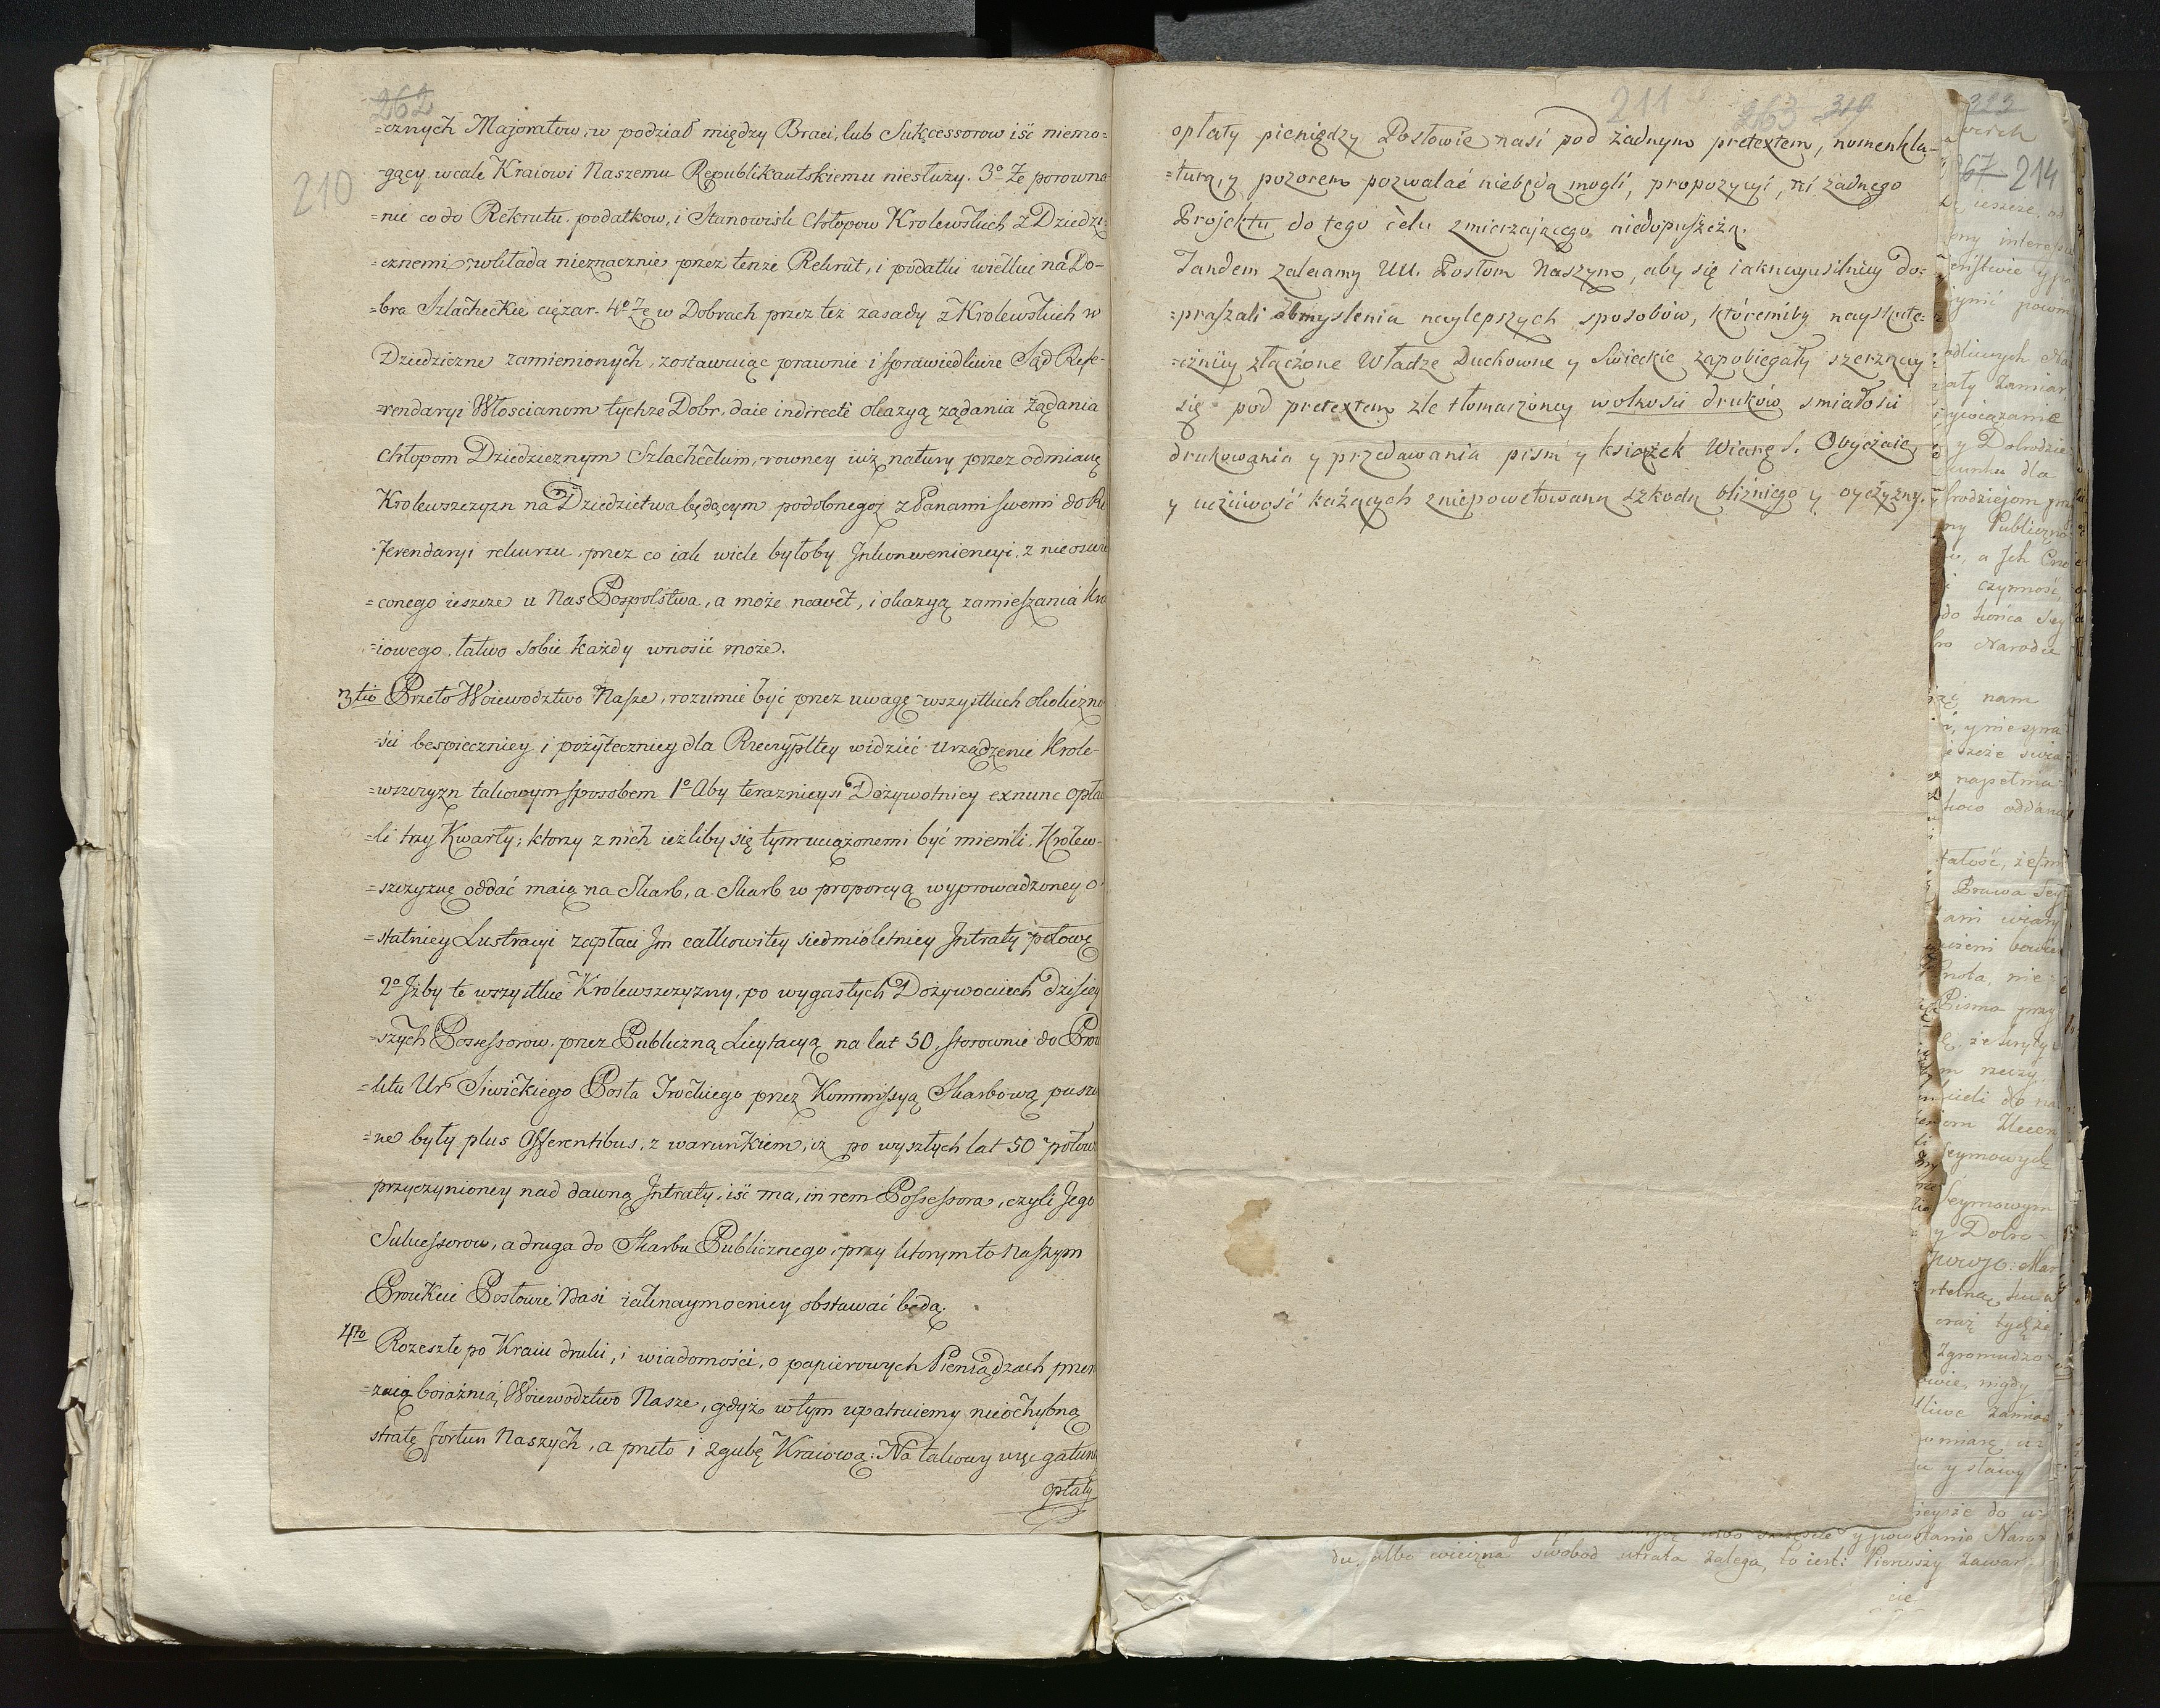 262
210
=cznych Majoratow, w podział między Braci, lub Sukcessorow iść niemo=
=gący wcale Kraiowi Naszemu Republikantskiemu niesłuży. 3° Ze porowna
=nie co do Rekrutu, podatkow, i Stanowisk Chłopow Krolewskich z Dziedzi=
=cznemi, wkłada nieznacznie przez tenże Rekrut, i podatki wielki na Do-
=bra Szlacheckie ciężar. 4° Ze w Dobrach przez też zasady z Krolewskich w
Dziedziczne zamienionych, zostawuiąc prawnie i sprawiedliwie Sąd Refe-
=rendaryi Włoscianom tychże Dobr, daie indirecte okazyą żądania
chłopom Dziedzicznym Szlacheckim, rowney iuż natury przez odmianę
Krolewszczyzn na Dziedzictwa będącym podobnegoż z Panami swemi do Re
ferendaryi rekursu, przez co iak wiele byłoby Inkonweniencyi, z nieoswie
=conego ieszcze u Nas Pospolstwa, a może nawet, i okazyą zamieszania Kra
=iowego, łatwo sobie każdy wnosić może.
3tio Przeto Woiewodztwo Nasze, rozumie być przez uwagę wszystkich okoliczno
=ści bespieczniey i pożyteczniey dla Rzeczypltey widzieć urządzenie Krole-
=wszczyzn takowym sposobem 1° Aby teraznieysi Dożywotnicy exnunc opłaca
=li trzy Kwarty; ktorzy z nich ieżliby się tym uciążonemi być mienili, Krolew-
=szczyznę oddać maią na Skarb, a Skarb w proporcyą wyprowadzoney o
=statniey Lustracyi zapłaci Im całkowitey siedmioletniey Intraty połowę
2° Iżby te wszystkie Krolewszczyzny, po wygasłych Dożywociech dzisiey
=szych Possessorow, przez Publiczną Licytacyą na lat 50, stosownie do Proie
=ktu Ur° Siwickiego Posła Trockiego przez Kommissyą Skarbową puszczo
=ne były plus Offerentibus, z warunkiem, iż po wyszłych lat 50 połowa
przyczynioney nad dawną Intraty, iść ma, in rem Possessora, czyli Jego
Sukcessorow, a druga do Skarbu Publicznego, przy ktorym to Naszym
Proiekcie Posłowie Nasi iak naymocniey obstawać będą.
4to Rozeszłe po Kraiu druki, i wiadomości, o papierowych Pieniądzach przera
=żaią boiaźnią Woiewodztwo Nasze, gdyż w tym upatruiemy nieochybną
stratę fortun Naszych, a przeto i zgubę Kraiową: Na takowy więc gatunek
opłaty
211 263 319
opłaty pieniędzy Posłowie nasi pod żadnym pretextem, nomenkla-
=turą, y pozorem pozwalać niebędą mogli, propozycyi, ni żadnego
Projektu do tego celu zmierzaiącego niedopuszczą.
Tandem zalecamy UU. Posłom Naszym, aby się iaknayusilniey do=
=praszali obmyslenia naylepszych sposobów, któremiby nayskute=
=czniey złączone Władze Duchowne y Swieckie zapobiegały szerzącey
się pod pretextem zle tłomaczoney wolności druków smiałości
drukowania y przedawania pism y książek Wiarę S. Obyczaie
y uczciwość każących z niepowetowaną szkodą bliźniego y oyczyzny.
222
67 214
du, albo swobod utrata zalega, to iest: Pierwszy zawar
cie